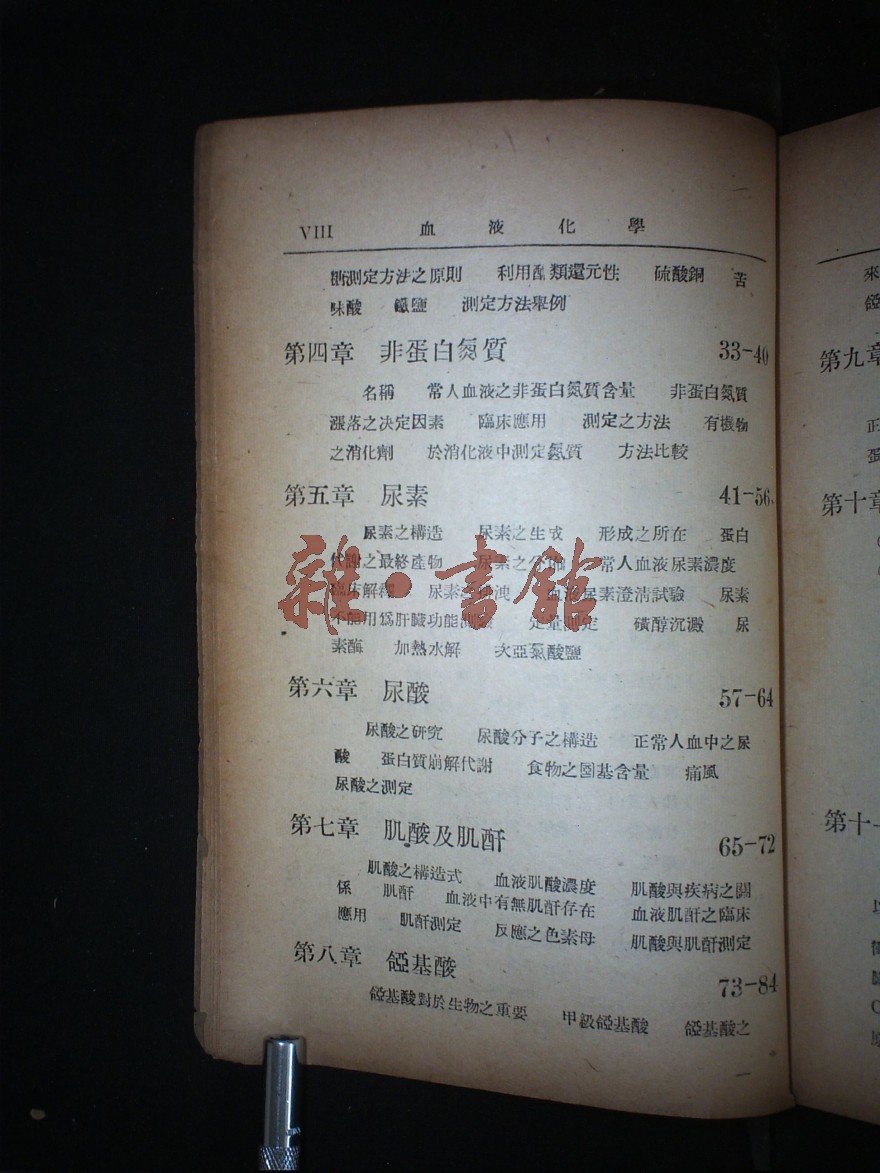 VIII 血液化學
糖測定方法之原則 利用醣類還元性 硫酸銅 苦
味酸 鐵鹽 測定方法舉例
第四章 非蛋白氮質 33-40
名稱 常人血液之非蛋白氮質含量 非蛋白氮質
漲落之決定因素 臨床應用 測定之方法 有機物
之消化劑 於消化液中測定氮質 方法比較
第五章 尿素 41-56
尿素之構造 尿素之生成 形成之所在 蛋白
代謝之最終產物 尿素之分 常人血液尿素濃度
臨床解釋 尿素 血液尿素澄清試驗 尿素
不能用爲肝臟功能測驗 定量測定 磺醇沉澱 尿
素酶 加熱水解 次亞氯酸鹽
第六章 尿酸 57-64
尿酸之研究 尿酸分子之構造 正常人血中之尿
酸 蛋白質崩解代謝 食物之圜基含量 痛風
尿酸之測定
第七章 肌酸及肌酐 65-72
肌酸之構造式 血液肌酸濃度 肌酸與疾病之關
係 肌酐 血液中有無肌酐存在 血液肌酐之臨床
應用 肌酐測定 反應之色素母 肌酸與肌酐測定
第八章 䤃基酸 73-84
基酸對於生物之重要 甲級 基酸 基酸之
雜·書館
來
第九章
正
蛋
第十章
第十
原